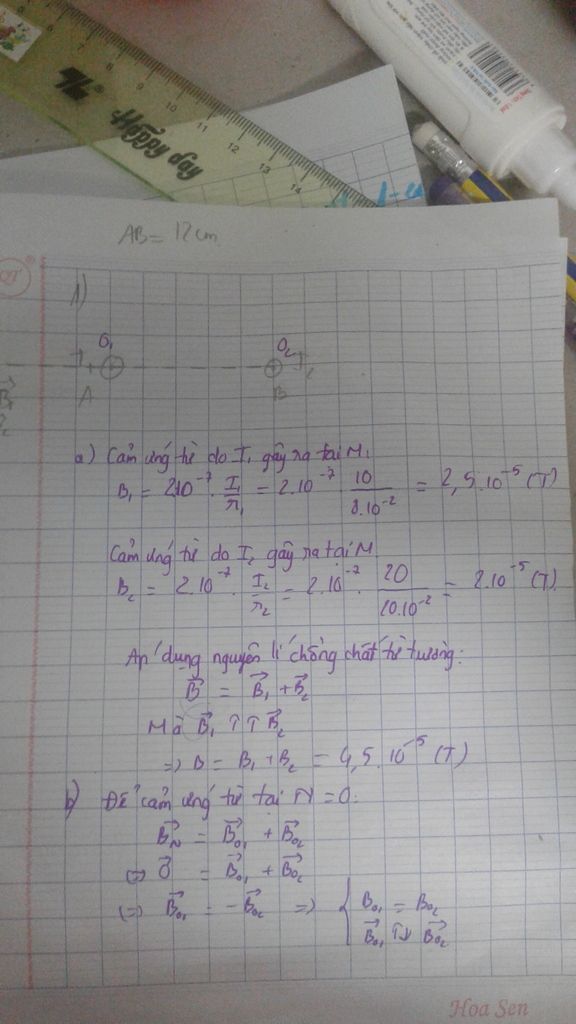 Happy day
AB = 12 cm
1)
O₁ O₂
I₁ I₂
A B
a) Cảm ứng từ do I₁ gây ra tại M.
B₁ = 2.10⁻⁷ . I₁/r₁ = 2.10⁻⁷ . 10/8.10⁻² = 2,5.10⁻⁵ (T)
Cảm ứng từ do I₂ gây ra tại M
B₂ = 2.10⁻⁷ . I₂/r₂ = 2.10⁻⁷ . 20/20.10⁻² = 2.10⁻⁵ (T)
Áp dụng nguyên lí chồng chất từ trường:
B⃗ = B⃗₁ + B⃗₂
Mà B⃗₁ ↑↑ B⃗₂
=> B = B₁ + B₂ = 4,5.10⁻⁵ (T)
b) Để cảm ứng từ tại N = 0:
B⃗N = B⃗o₁ + B⃗o₂
<=> 0⃗ = B⃗o₁ + B⃗o₂
<=> B⃗o₁ = -B⃗o₂ => { Bo₁ = Bo₂
B⃗o₁ ↑↓ B⃗o₂
Hoa Sen